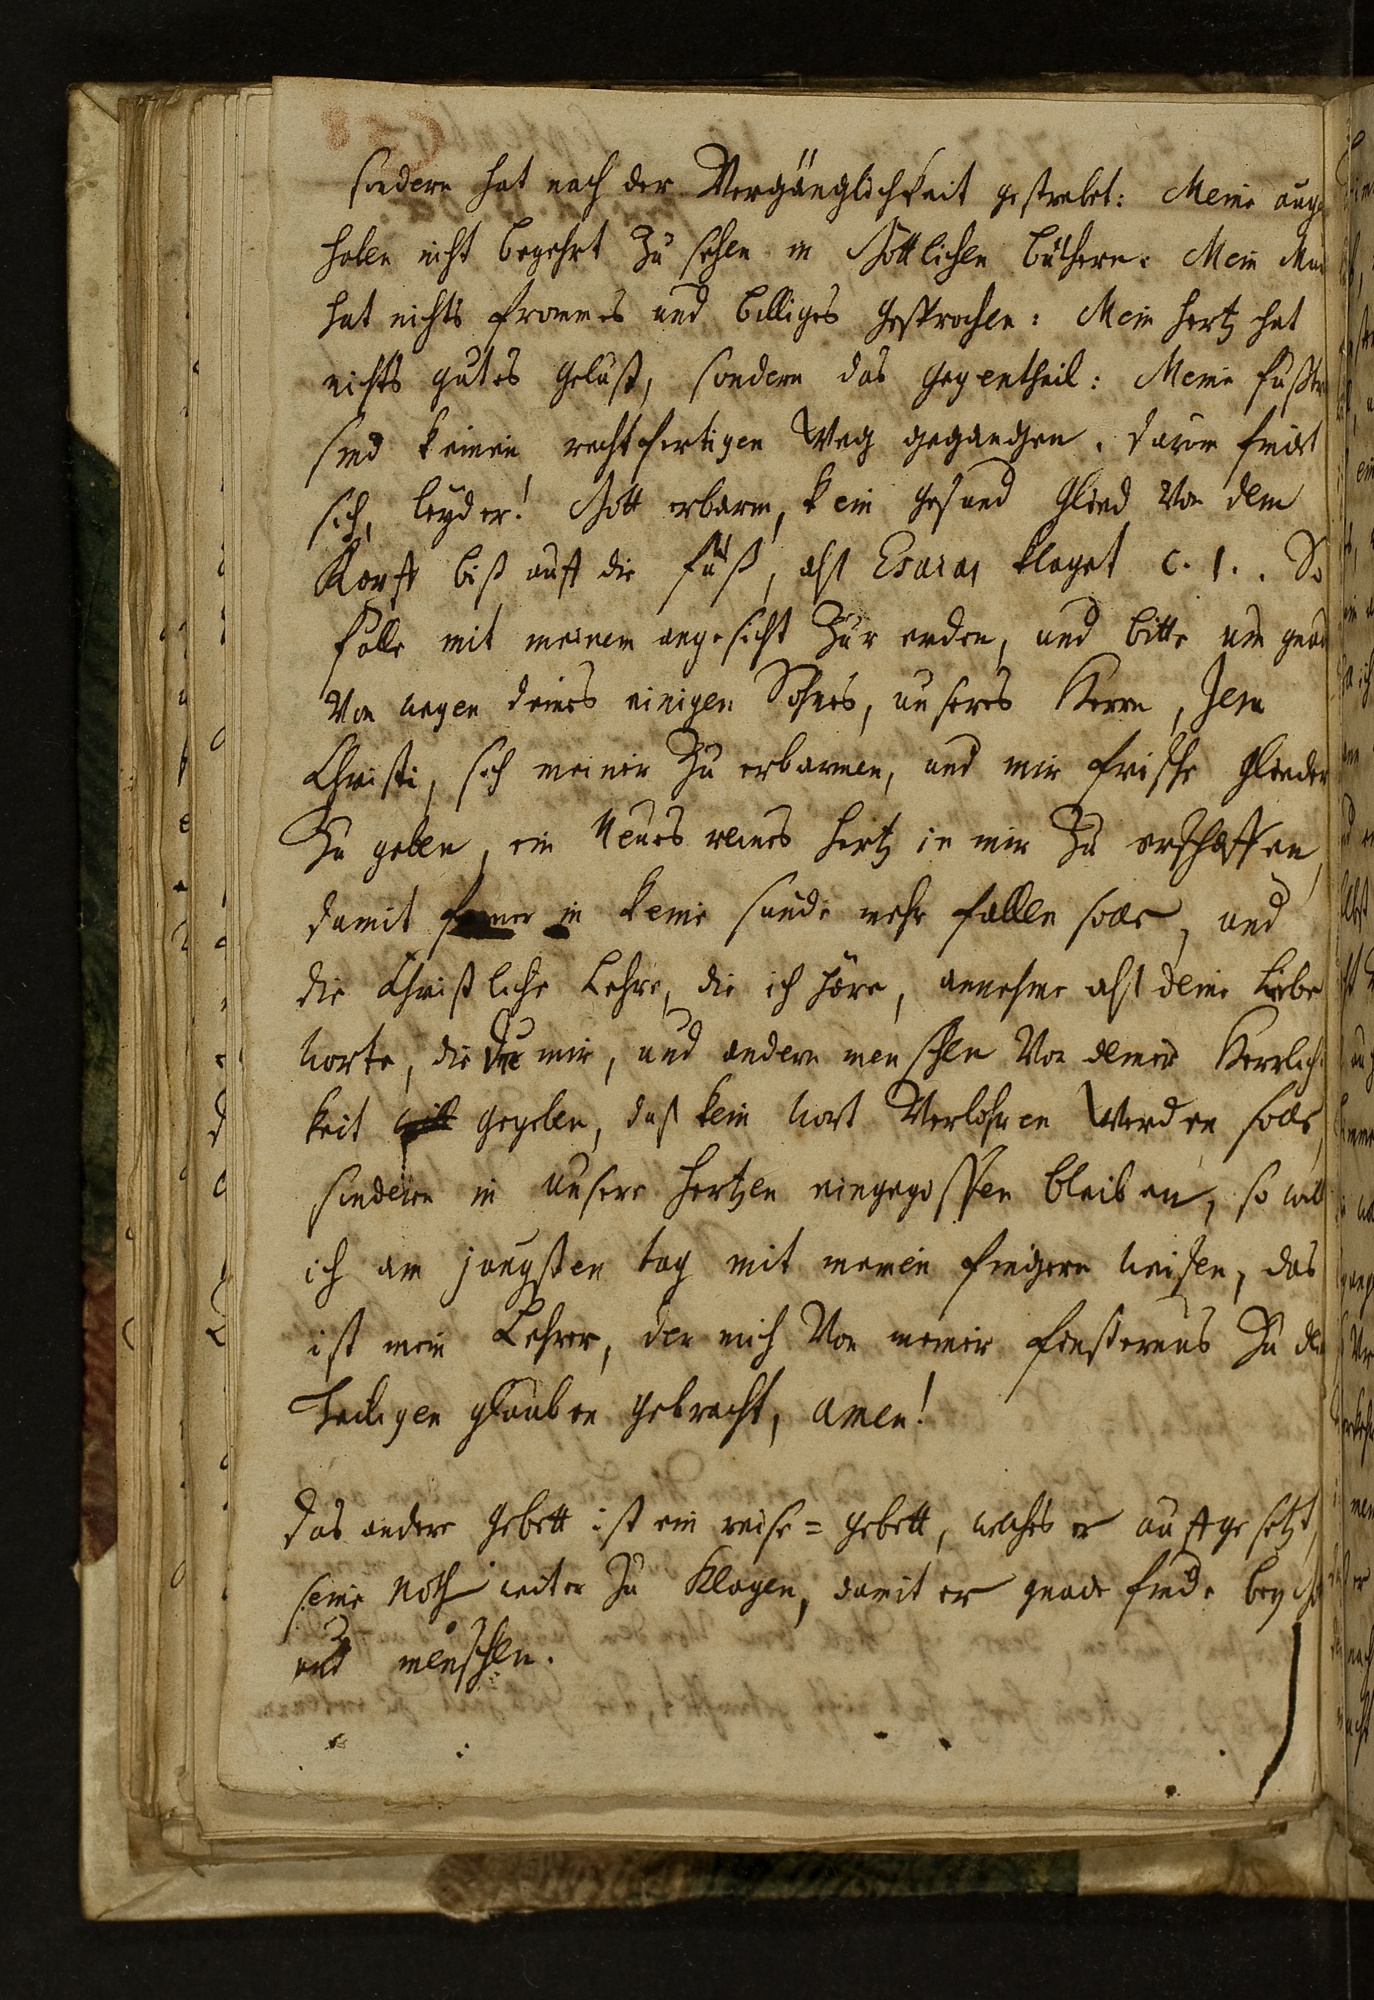 sondern hat nach der Vergänglichkeit gestrebet: Meine auge
haben nicht begehrt zu sehen in Göttlichen büchern: Mein Mu
hat nichts frommes und billiges gesprochen: Mein hertz hat
nichts gutes gelust, sondern das gegentheil: Meine fuß
sind keinen rechtfertigen Weg gegangen. darum findet
sich, leyder! Gott erbarm, kein gesund glied Von dem
Kopff biß auff die füß, alß Esaias klaget c. 1. . So
falle mit meinem angesicht Zur erden, und bitte um gnad
Von wegen deines einigen Sohnes, unseres Herrn, Jesu
Christi, sich meiner Zu erbarmen, und mir frische glieder
Zu geben, ein Neues reines hertz in mir Zu erschaffen,
damit ferner in keine sünde mehr fallen solle, und
die Christliche Lehre, die ich höre, annehme alß deine Liebe
worte, die Du mir, und andern menschen Von deiner Herrlich-
keit gegeben, daß kein wort Verlohren Werden solle,
sondern in unsere hertzen eingegossen bleiben, so will
ich am jüngsten tag mit meinen fingern weisen, das
ist mein Lehrer, der mich Von meiner finsternus Zu de
heiligen glauben gebracht, amen!
das andere gebett ist ein reise=gebett, welches er auffgesetzt,
seine Noth weiter Zu Klagen, damit er gnade finde bey
und menschen.